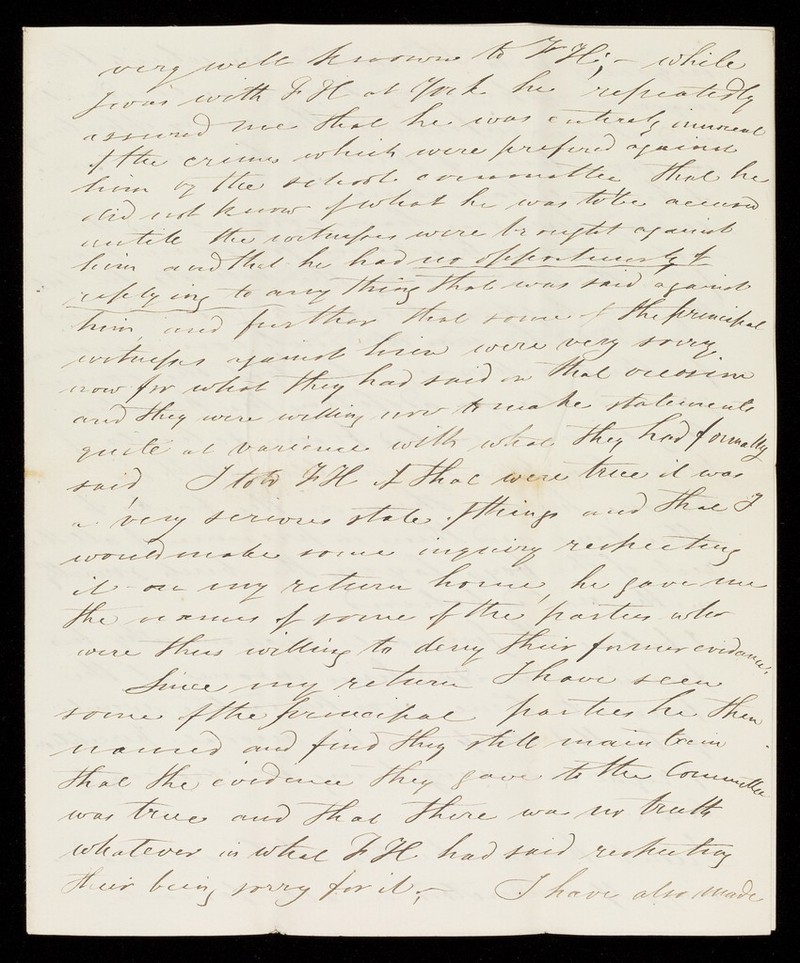 very well known to FH; – while
I was with FH at York he repeatedly
assured me that he was entirely innocent
of the crimes which were prefered against
him by the school committee that he
did not know of what he was to be accused
untill the witnesses were brought against
him and that he had no opportunity of
replying to any thing that was said against
him and further that some of the principal
witnesses against him were very sorry
now for what they had said on that occasion
and they were willing now to make statements
quite at variance with what they had formally
said I told FH if that were true it was
a very serious state of things and that I
would make some inquiry respecting
it on my return home, he gave me
the names of some of the parties who
were thus willing to deny their former evidence.
Since my return I have seen
some of the principal parties he then
named and find they still maintain
that the evidence they gave to the Committee
was true and that there was no truth
whatever in what FH had said respecting
their being sorry for it; – I have also made